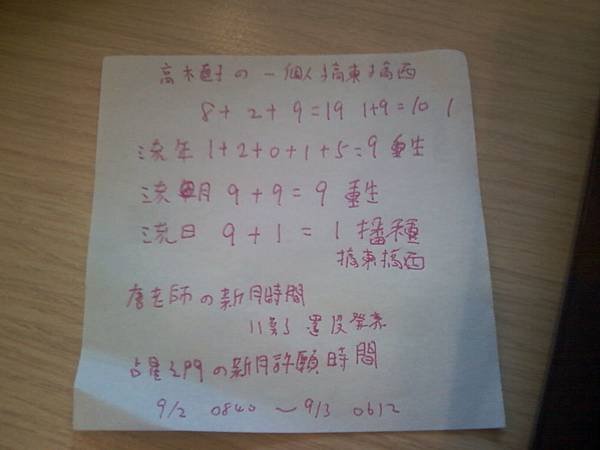 高木直子の一個人搞東搞西
8+2+9=19 1+9=10 1
流年 1+2+0+1+5=9 重生
流月 9+9=9 重生
流日 9+1=1 播種
搞東搞西
唐老師の新月時間
11數了還沒發表
占星之門の新月許願時間
9/2 0840 ~ 9/3 0612